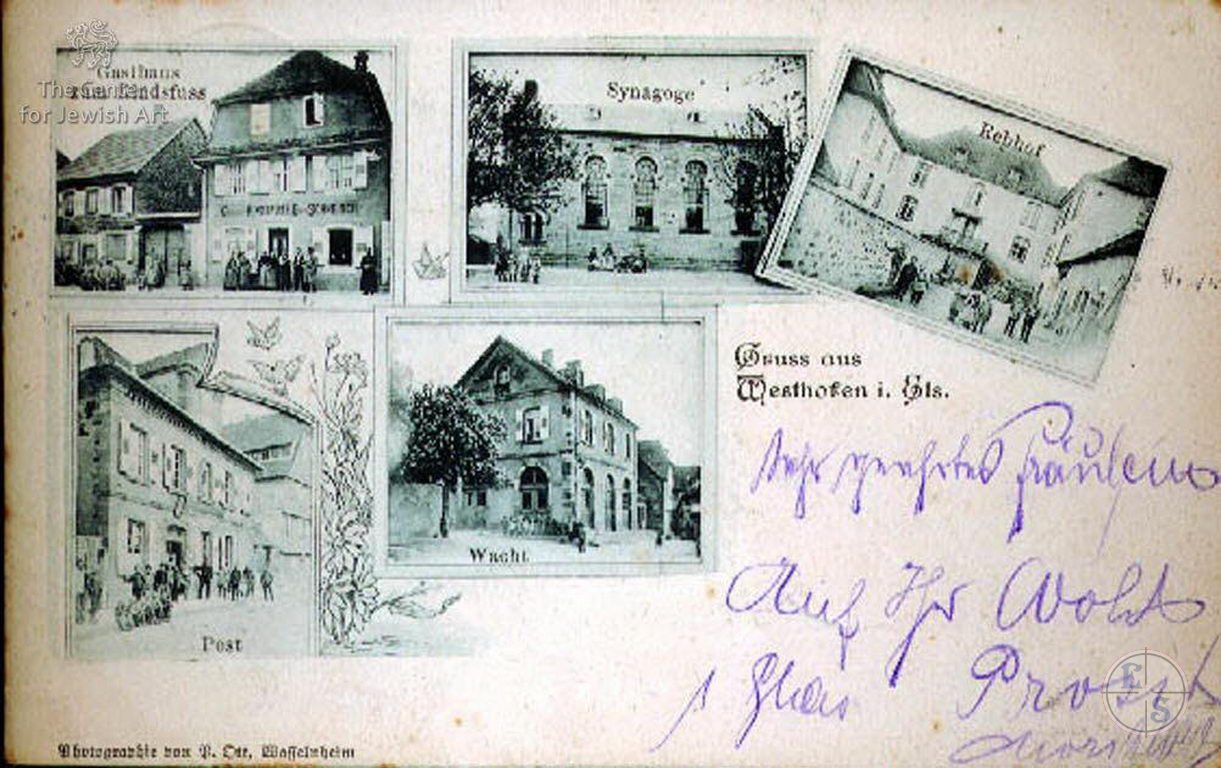 The Center
for Jewish Art
Gasthaus
zum Rindsfuss
Synagoge
Rebhof
Post
Wacht
Gruss aus
Westhofen i. Els.
Sehr geehrtes Fräulein
Auf Ihr Wohl
1 Glas Prosit
Photographie von P. Ott, Wasselnheim
E
S